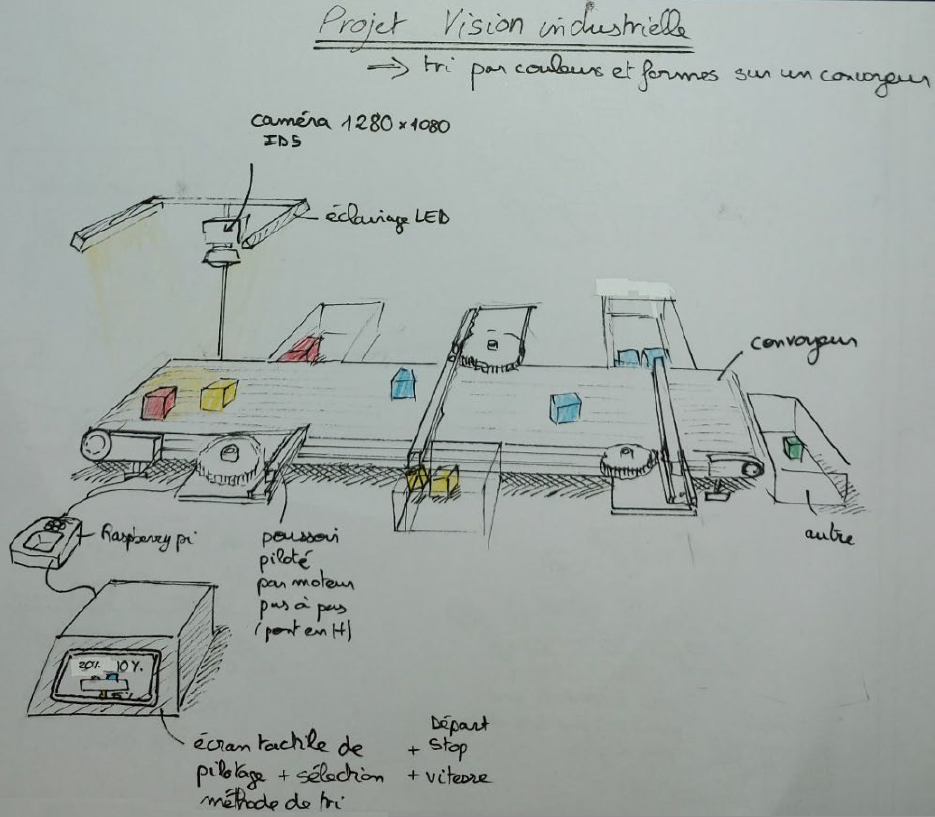 Projet Vision industrielle
⇒ tri par couleurs et formes sur un convoyeur
caméra 1280 × 1080
IDS
éclairage LED
convoyeur
Raspberry pi
poussoir
piloté
par moteur
pas à pas
(pont en H)
autre
20% 10%
5%
écran tactile de
pilotage + sélection
méthode de tri
+ Départ
Stop
+ vitesse